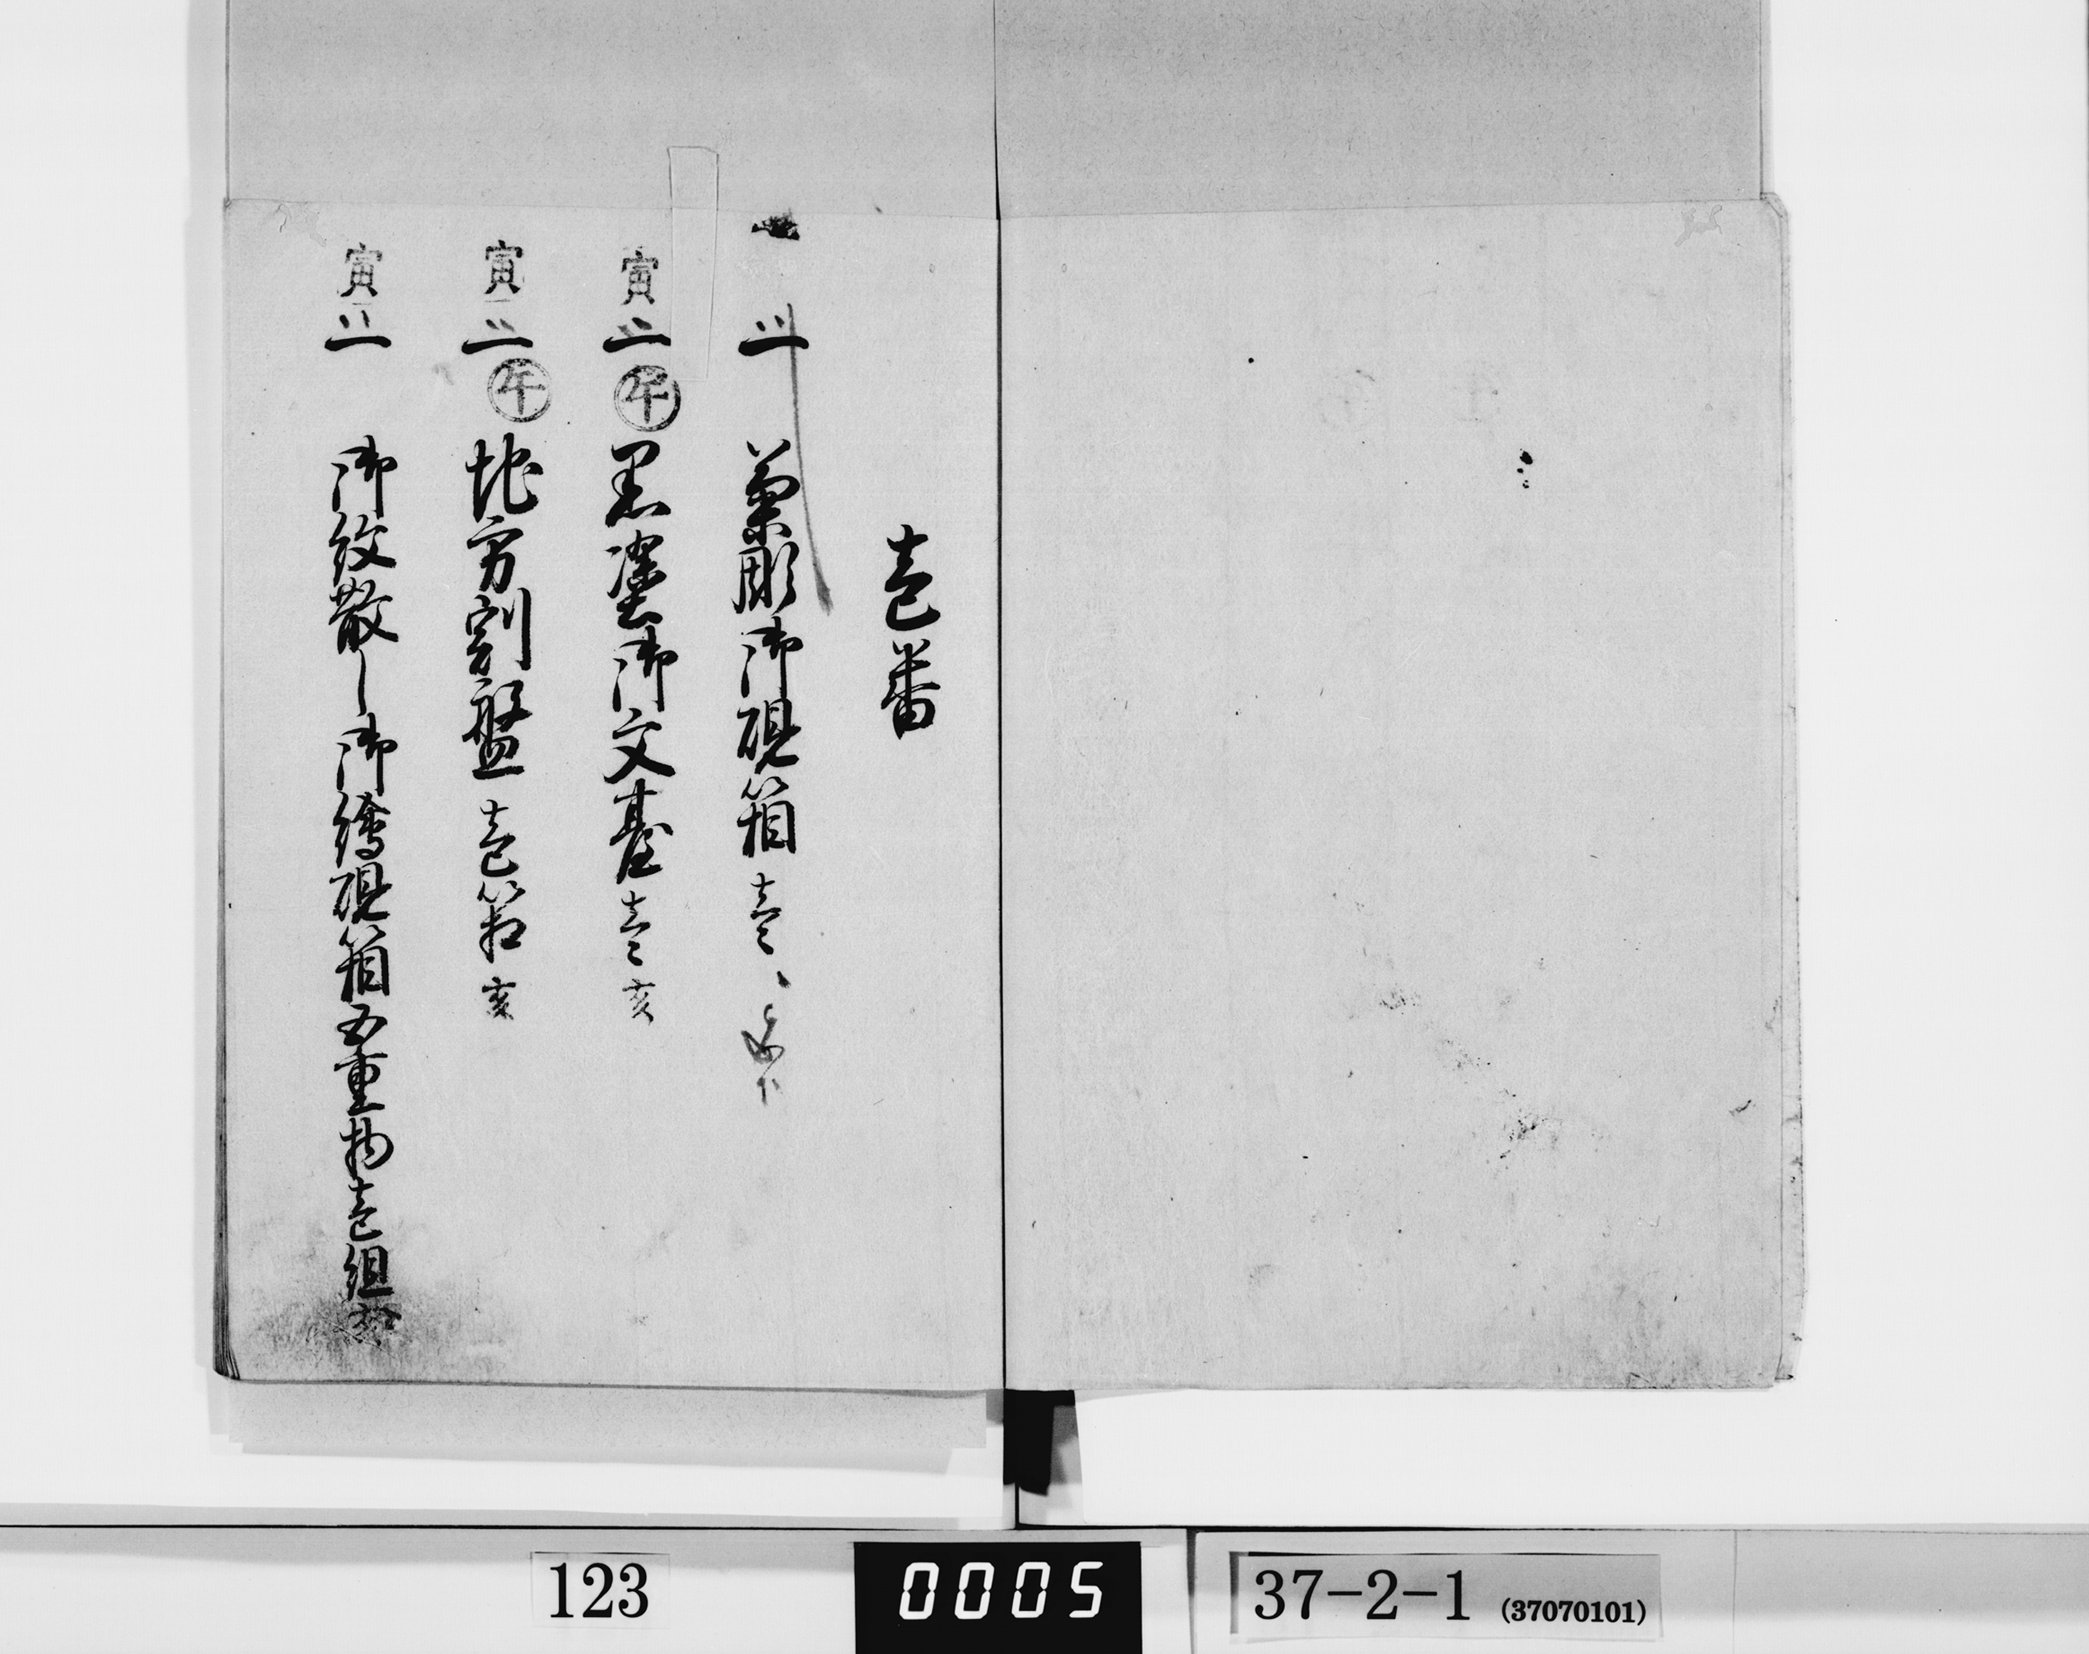 壱番
一 菊彫御硯箱 壱ツ
寅 一 午 黒塗御文臺 壱ツ 亥
寅 一 午 地方割盤 壱箱 亥
寅 一 御紋散し御繪硯箱五重物壱組
123
0005
37-2-1 (37070101)